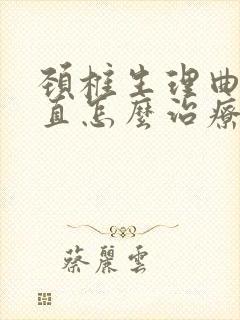 頚椎生理曲
直怎麽治療
蔡麗雲